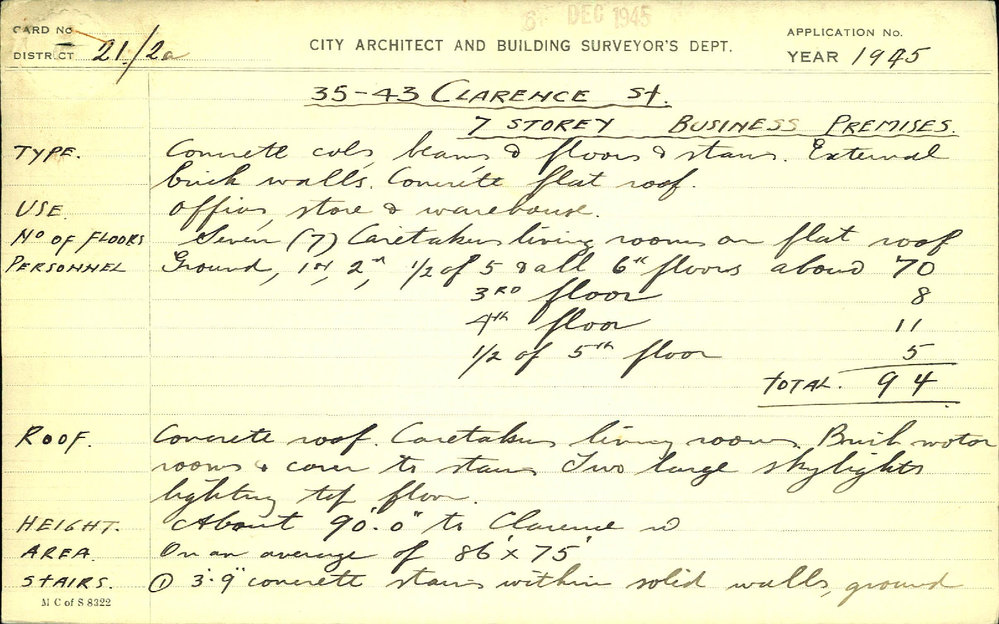 6 DEC 1945
CARD No
DISTRICT 21/2a
CITY ARCHITECT AND BUILDING SURVEYOR'S DEPT.
APPLICATION No.
YEAR 1945
35-43 CLARENCE St.
7 STOREY BUSINESS PREMISES.
TYPE. Concrete cols, beams & floors & stairs. External
brick walls. Concrete flat roof.
USE. Offices, store & warehouse.
No OF FLOORS Seven (7) Caretakers living rooms on flat roof
PERSONNEL Ground, 1st, 2nd, 1/2 of 5 & all 6th floors about 70
3RD floor 8
4th floor 11
1/2 of 5th floor 5
TOTAL. 94
ROOF. Concrete roof. Caretakers living rooms. Brick motor
rooms & cover to stairs Two large skylights
lighting top floor.
HEIGHT. About 90'.0" to Clarence
AREA. On an average of 86' x 75'
STAIRS. ① 3'.9" concrete stairs within solid walls, ground
M C of S 8322